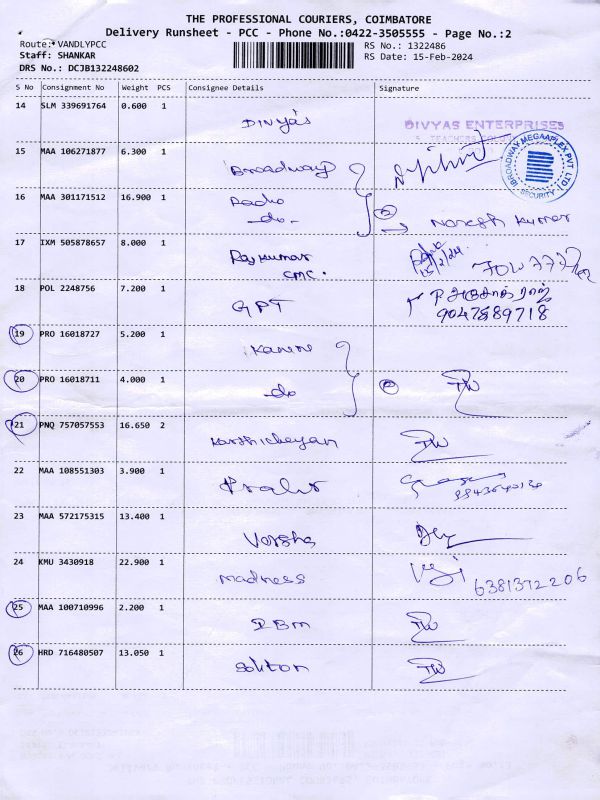 THE PROFESSIONAL COURIERS, COIMBATORE
Delivery Runsheet - PCC - Phone No.:0422-3505555 - Page No.:2
Route: VANDLYPCC RS No.: 1322486
Staff: SHANKAR RS Date: 15-Feb-2024
DRS No.: DCJB132248602
S No Consignment No Weight PCS Consignee Details Signature
14 SLM 339691764 0.600 1 Divyas DIVYAS ENTERPRISES
15 MAA 106271877 6.300 1 Broadway
BROADWAY MEGAAPLEX PVT LTD SECURITY
16 MAA 301171512 16.900 1 Radio
-do- Naresh Kumar
17 IXM 505878657 8.000 1 Rajkumar
CMC.
18 POL 2248756 7.200 1 GPT
9047889718
19 PRO 16018727 5.200 1
20 PRO 16018711 4.000 1 -do-
21 PNQ 757057553 16.650 2 Karthicheyan
22 MAA 108551303 3.900 1
23 MAA 572175315 13.400 1 Varsha
24 KMU 3430918 22.900 1 Madness 6381372206
25 MAA 100710996 2.200 1 IBM
26 HRD 716480507 13.050 1